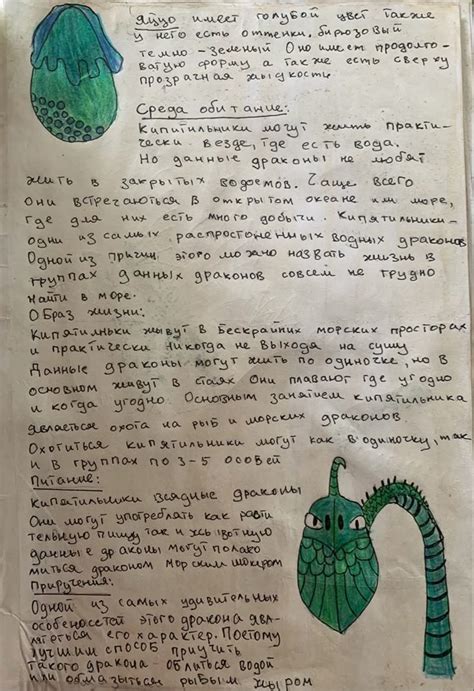 яйцо имеет голубой цвет также
у него есть оттенки. бирюзовый
темно-зеленый Оно имеет продолго-
ватую форму а также есть сверху
прозрачная жыдкость
Среда обитание:
Кипитильники могут жить практи-
чески везде, где есть вода.
Но данные драконы не любят
жить в закрытых водоемов. Чаще всего
Они встречаються в открытом океане или море,
где для них есть много добычи. Кипятильники-
одни из самых распростоненных водных драконов
Одной из причин этого можно назвать жизнь в
группах данных драконов совсем не трудно
найти в море.
Образ жизни:
Кипятилньки жывут в Бескрайних морских просторах
и практически никогда не выходя на сушу
Данные драконы могут жить по одиночке, но в
основном живут в стаях Они плавают где угодно
и когда угодно. Основным занятием кипятильника
является охота на рыб и морских драконов.
Охотиться кипятильники могут как в одиночку, так
и в группах по 3-5 особей
Питание:
Кипятильники всядные драконы
Они могут употреблять как расти
тельную пищу так и жывотную
данные драконы могут полако
миться драконом морским шокиром
Приручения:
Одной из самых удивительных
особеносетай этого дракона явл-
ляеться его характер. Поэтому
лучшим способ приучить
такого дракона - облиться водой
или обмазыться рыбым жыром